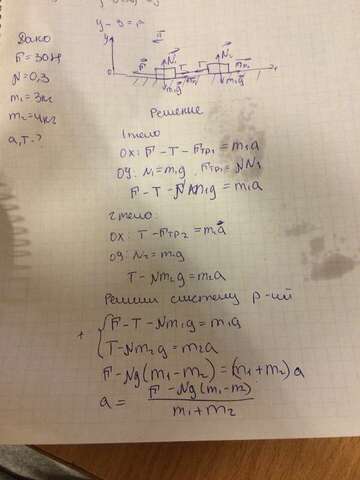 Дано
F = 30 Н
μ = 0,3
m₁ = 3 кг
m₂ = 4 кг
a, T - ?
y
a
N₁
N₂
F
T
T
Fтр₂
m₁g
m₂g
x
Решение
1 тело
OX: F - T - Fтр₁ = m₁a
OY: N₁ = m₁g, Fтр₁ = μN₁
F - T - μm₁g = m₁a
2 тело:
OX: T - Fтр₂ = m₂a
OY: N₂ = m₂g
T - μm₂g = m₂a
Решим систему р-ий
+ { F - T - μm₁g = m₁a
T - μm₂g = m₂a
F - μg(m₁ - m₂) = (m₁ + m₂)a
a = F - μg(m₁ - m₂)
m₁ + m₂